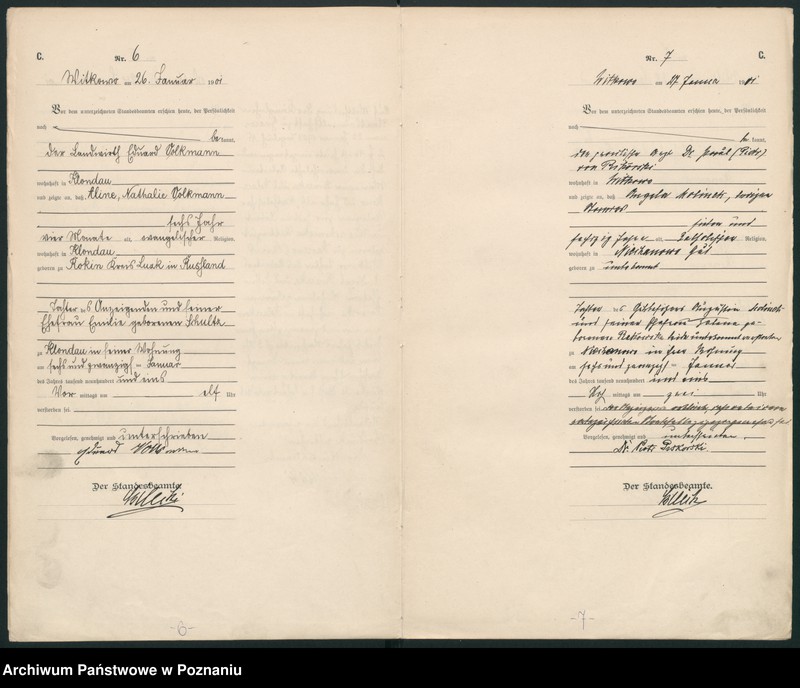 C.
Nr. 6
Witkowo am 26. Januar 1901
Vor dem unterzeichneten Standesbeamten erschien heute, der Persönlichkeit
nach
bekannt,
der Landwirth Eduard Volkmann
wohnhaft in Klondau
und zeigte an, daß Aline, Nathalie Volkmann
sechs Jahr
vier Monate alt, evangelischer Religion,
wohnhaft in Klondau
geboren zu Roken Kreis Luak in Russland
Tochter des Anzeigenden und seiner
Ehefrau Emilie geborenen Schultz
zu Klondau in seiner Wohnung
am sechs und zwanzigsten Januar
des Jahres tausend neunhundert und eins
Vor mittags um elf Uhr
verstorben sei.
Vorgelesen, genehmigt und unterschrieben
Eduard Volkmann
Der Standesbeamte.
-6-
Nr. 7
C.
Witkowo am 27 Januar 1901
Vor dem unterzeichneten Standesbeamten erschien heute, der Persönlichkeit
nach
be kannt,
der praktische Arzt Dr.
wohnhaft in Witkowo
und zeigte an, daß Angela
sieben und
sechzig Jahre alt, katholischer Religion,
wohnhaft in
geboren zu unbekannt
Tochter des Gutsbesitzers Augustin
und seiner Ehefrau Helena ge-
borenen
zu in ihrer Wohnung
am sechs und zwanzigsten Januar
des Jahres tausend neunhundert und eins
Nach mittags um zwei Uhr
verstorben sei
Vorgelesen, genehmigt und unterschrieben.
Dr. Piotr
Der Standesbeamte.
-7-
Archiwum Państwowe w Poznaniu